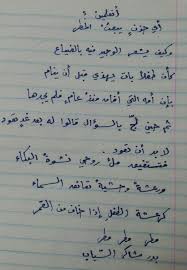 أتعلمين
أي حزن يبعث المطر
وكيف يشعر الوحيد فيه بالضياع
كأن طفلاً بات يهذي قبل أن ينام
بأن أمه التي أفاق منذ عام فلم يجدها
ثم حين لج بالسؤال قالوا له بعد غد تعود
لا بد أن تعود
فتستفيق ملء روحي نشوة البكاء
ورعشة وحشية تعانق السماء
كرعشة الطفل إذا خاف من القمر
مطر مطر مطر
بدر شاكر السياب